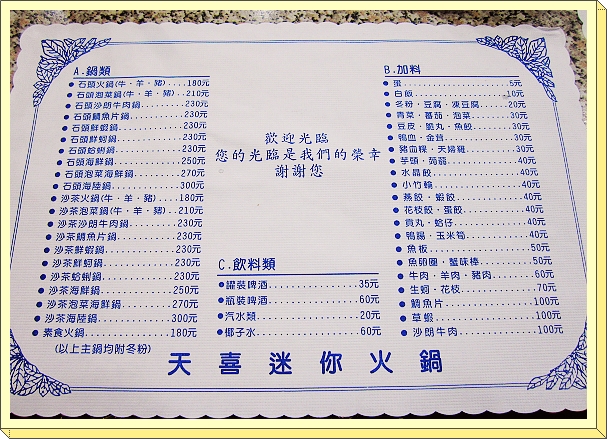 A.鍋類
石頭火鍋(牛‧羊‧豬)....180元
石頭泡菜鍋(牛‧羊‧豬)..210元
石頭沙朗牛肉鍋.........230元
石頭鯛魚片鍋...........230元
石頭鮮蝦鍋.............230元
石頭鮮蚵鍋.............230元
石頭蛤蜊鍋.............230元
石頭海鮮鍋.............250元
石頭泡菜海鮮鍋.........270元
石頭海陸鍋.............300元
沙茶火鍋(牛‧羊‧豬)....180元
沙茶泡菜鍋(牛‧羊‧豬)..210元
沙茶沙朗牛肉鍋.........230元
沙茶鯛魚片鍋...........230元
沙茶鮮蝦鍋.............230元
沙茶鮮蚵鍋.............230元
沙茶蛤蜊鍋.............230元
沙茶海鮮鍋.............250元
沙茶泡菜海鮮鍋.........270元
沙茶海陸鍋.............300元
素食火鍋...............180元
(以上主鍋均附冬粉)
歡迎光臨
您的光臨是我們的榮幸
謝謝您
C.飲料類
罐裝啤酒...............35元
瓶裝啤酒...............60元
汽水類.................20元
椰子水.................60元
B.加料
蛋.....................5元
白飯...................10元
冬粉‧豆腐‧凍豆腐......20元
青菜‧蕃茄‧泡菜........30元
豆皮‧脆丸‧魚餃........30元
鴨血‧金菇..............30元
豬血粿‧天婦羅..........30元
芋頭‧蒟蒻..............40元
水晶餃.................40元
小竹輪.................40元
燕餃‧蝦餃..............40元
花枝餃‧蛋餃............40元
貢丸‧蛤仔..............40元
鴨腸‧玉米筍............40元
魚板...................50元
魚卵圈‧蟹味棒..........50元
牛肉‧羊肉‧豬肉........60元
生蚵‧花枝..............70元
鯛魚片.................100元
草蝦...................100元
沙朗牛肉...............100元
天喜迷你火鍋